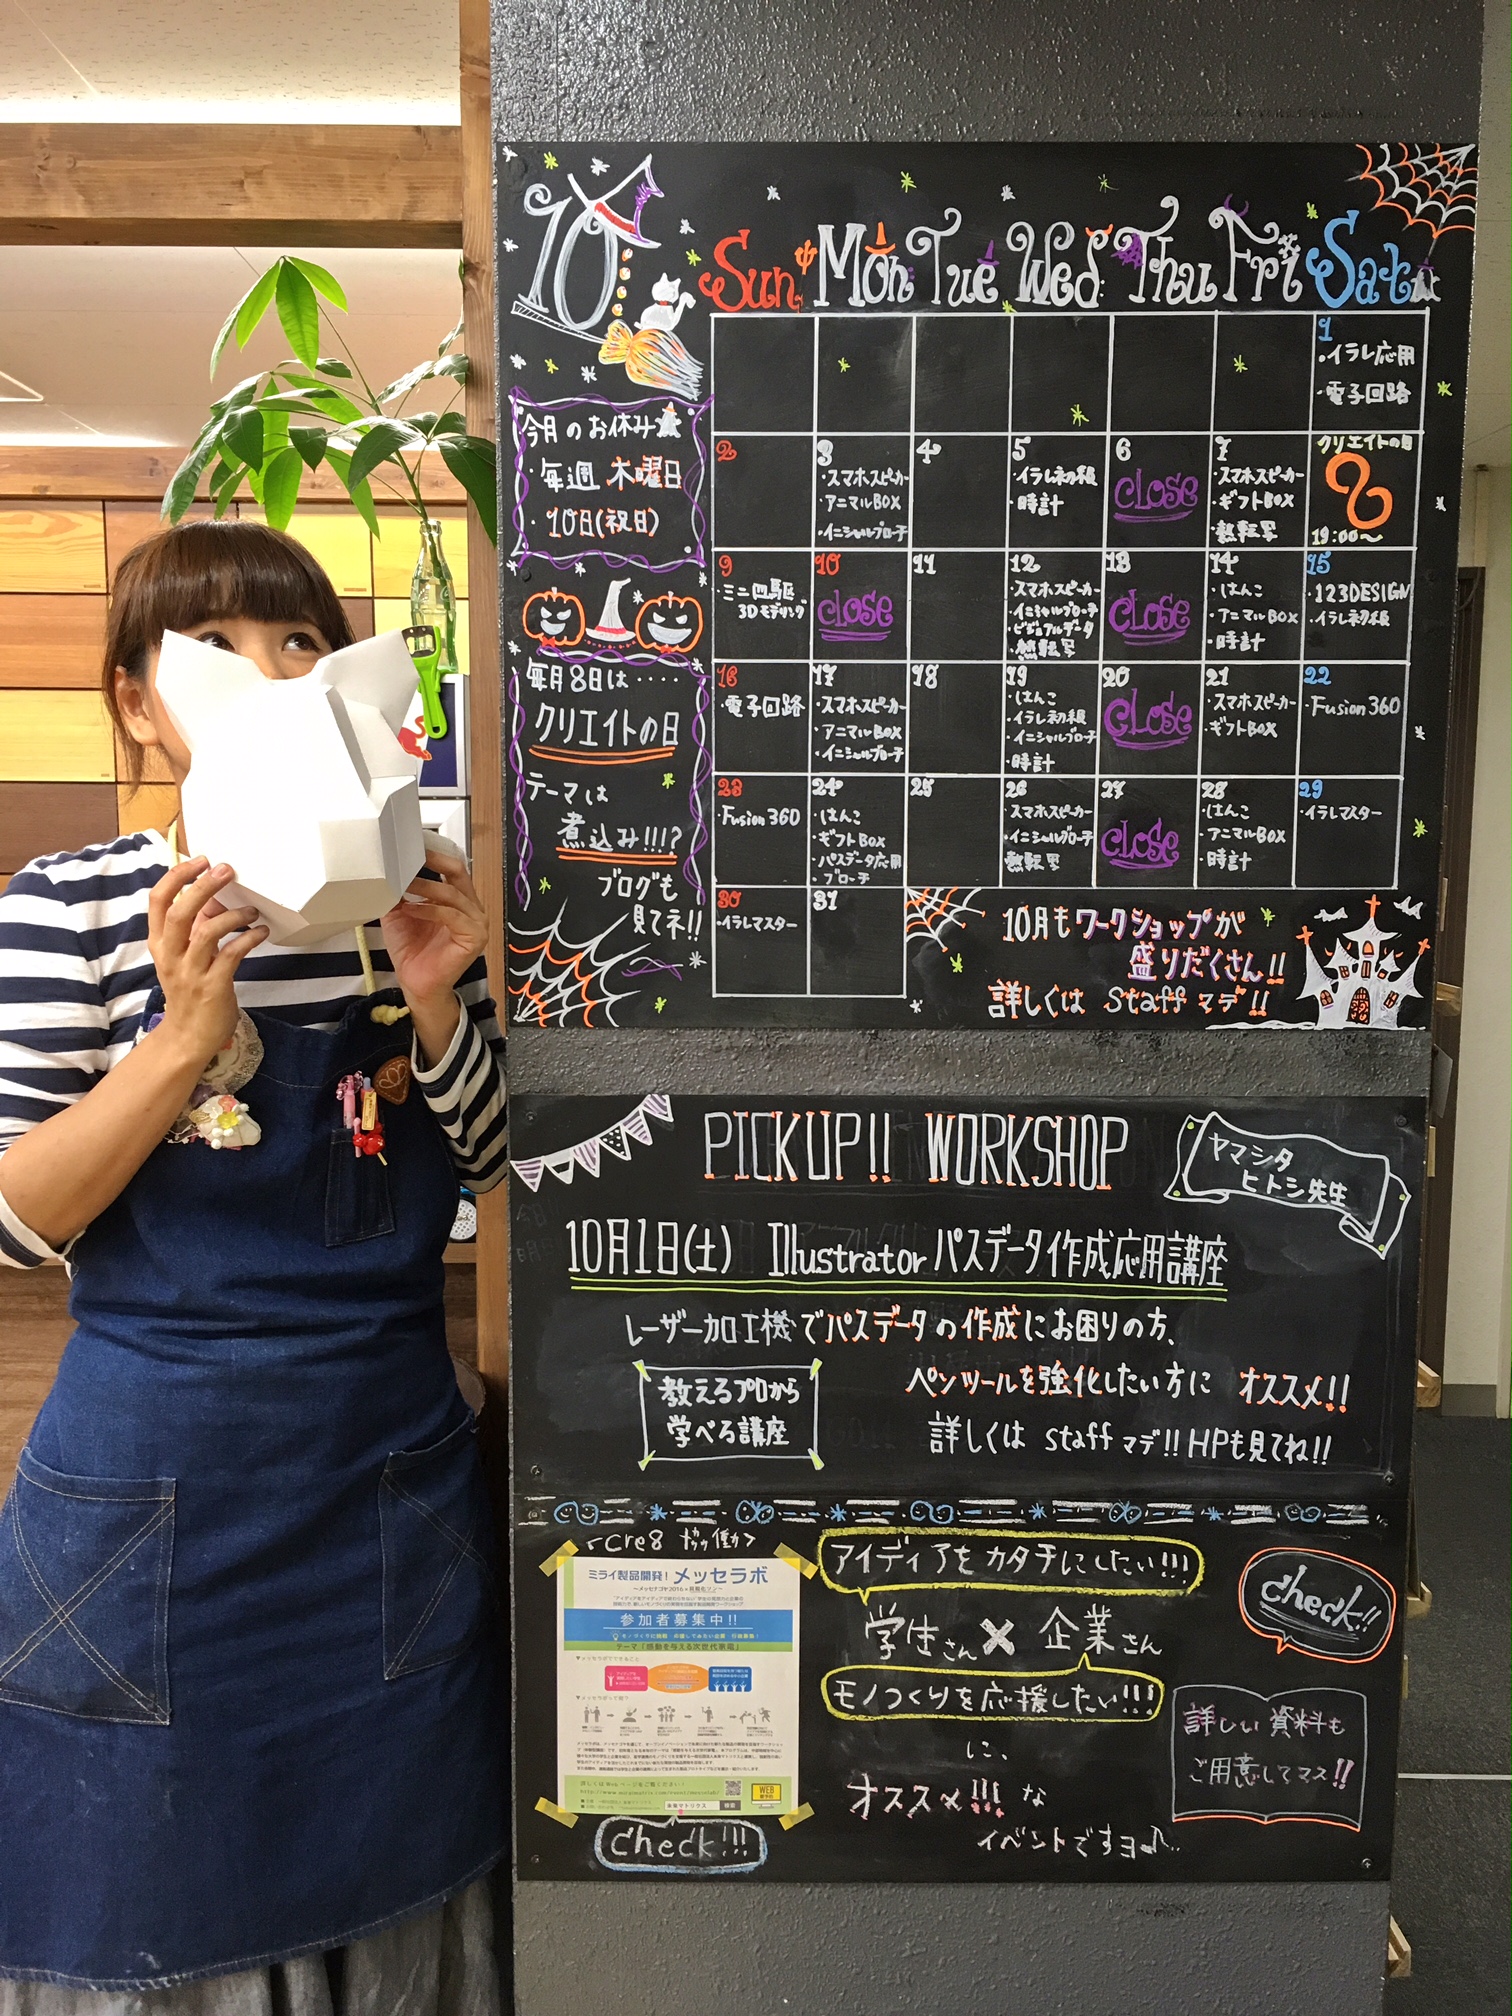 10
Sun Mon Tue Wed Thu Fri Sat
今月のお休み
・毎週 木曜日
・10日(祝日)
毎月8日は‥‥
クリエイトの日
テーマは
煮込み!!!?
ブログも
見てネ!!
1
・イラレ応用
・電子回路
2
3
・スマホスピーカー
・アニマルBOX
・イニシャルブローチ
4
5
・イラレ初級
・時計
6
CLOSE
7
・スマホスピーカー
・ギフトBOX
・熱転写
クリエイトの日
8
19:00〜
9
・ミニ四駆
3Dモデリング
10
CLOSE
11
12
・スマホスピーカー
・イニシャルブローチ
・ビジュアルデータ
・熱転写
13
CLOSE
14
・はんこ
・アニマルBOX
・時計
15
・123DESIGN
・イラレ初級
16
・電子回路
17
・スマホスピーカー
・アニマルBOX
・イニシャルブローチ
18
19
・はんこ
・イラレ初級
・イニシャルブローチ
・時計
20
CLOSE
21
・スマホスピーカー
・ギフトBOX
22
・Fusion360
23
・Fusion360
24
・はんこ
・ギフトBOX
・パスデータ応用
・ブローチ
25
26
・スマホスピーカー
・イニシャルブローチ
熱転写
27
CLOSE
28
・はんこ
・アニマルBOX
・時計
29
・イラレマスター
30
・イラレマスター
31
10月もワークショップが
盛りだくさん!!
詳しくは staffマデ!!
PICKUP!! WORKSHOP
ヤマシタ
ヒトシ先生
10月1日(土) Illustrator パスデータ作成応用講座
レーザー加工機でパスデータの作成にお困りの方、
ペンツールを強化したい方に オススメ!!
教えるプロから
学べる講座
詳しくは staffマデ!! HPも見てね!!
<cre8 协働>
ミライ製品開発! メッセラボ
参加者募集中!!
テーマ「感動を与える次世代家電」
▼メッセラボでできること
▼メッセラボって何?
詳しくはWebページをご覧ください!
未来マトリクス
検索
WEB
check!!!
アイディアをカタチにしたい!!!
学生さん×企業さん
モノづくりを応援したい!!!
に、
オススメ!!!な
イベントですヨ♪
check!!
詳しい資料も
ご用意してマス!!